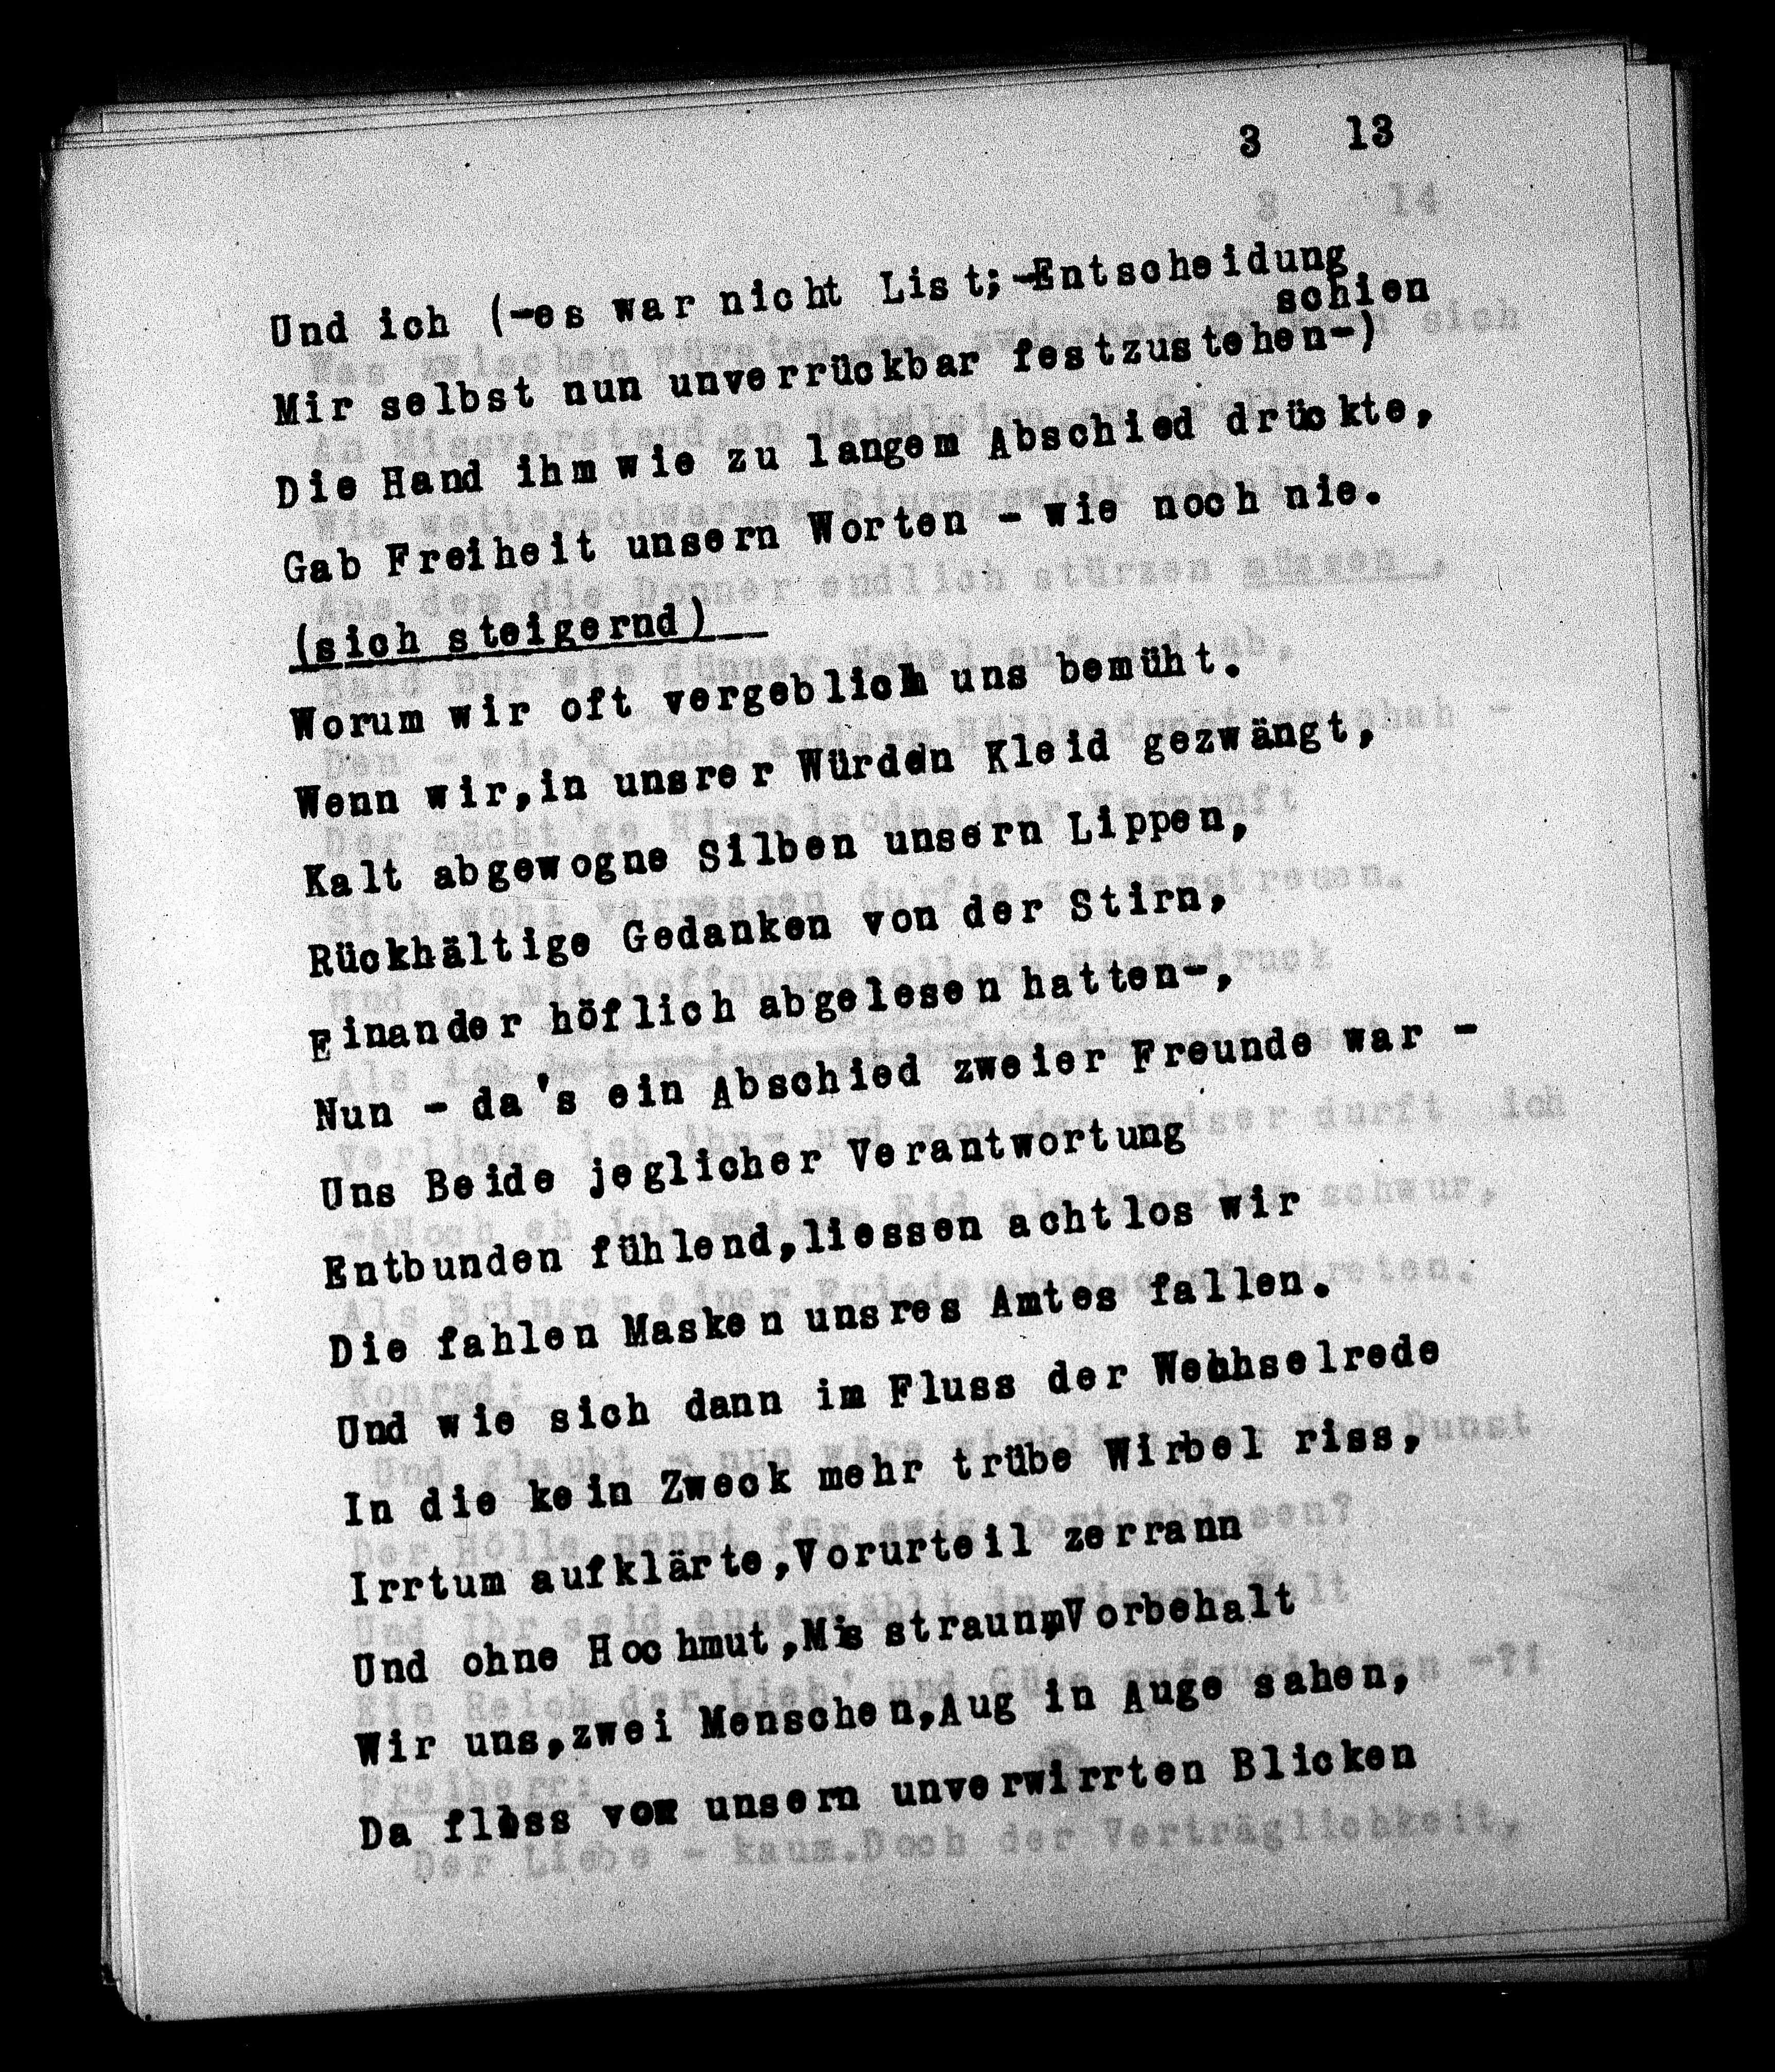 3 13
Und ich (-es war nicht List;-Entscheidung
schien
Mir selbst nun unverrückbar festzustehen-)
Die Hand ihm wie zu langem Abschied drückte,
Gab Freiheit unsern Worten - wie noch nie.
(sich steigernd)
Worum wir oft vergeblich uns bemüht.
Wenn wir,in unsrer Würden Kleid gezwängt,
Kalt abgewogne Silben unsern Lippen,
Rückhältige Gedanken von der Stirn,
Einander höflich abgelesen hatten-,
Nun - da's ein Abschied zweier Freunde war -
Uns Beide jeglicher Verantwortung
Entbunden fühlend,liessen achtlos wir
Die fahlen Masken unsres Amtes fallen.
Und wie sich dann im Fluss der Wechselrede
In die kein Zweck mehr trübe Wirbel riss,
Irrtum aufklärte,Vorurteil zerrann
Und ohne Hochmut,Misstraun,Vorbehalt
Wir uns,zwei Menschen,Aug in Auge sahen,
Da floss von unsern unverwirrten Blicken